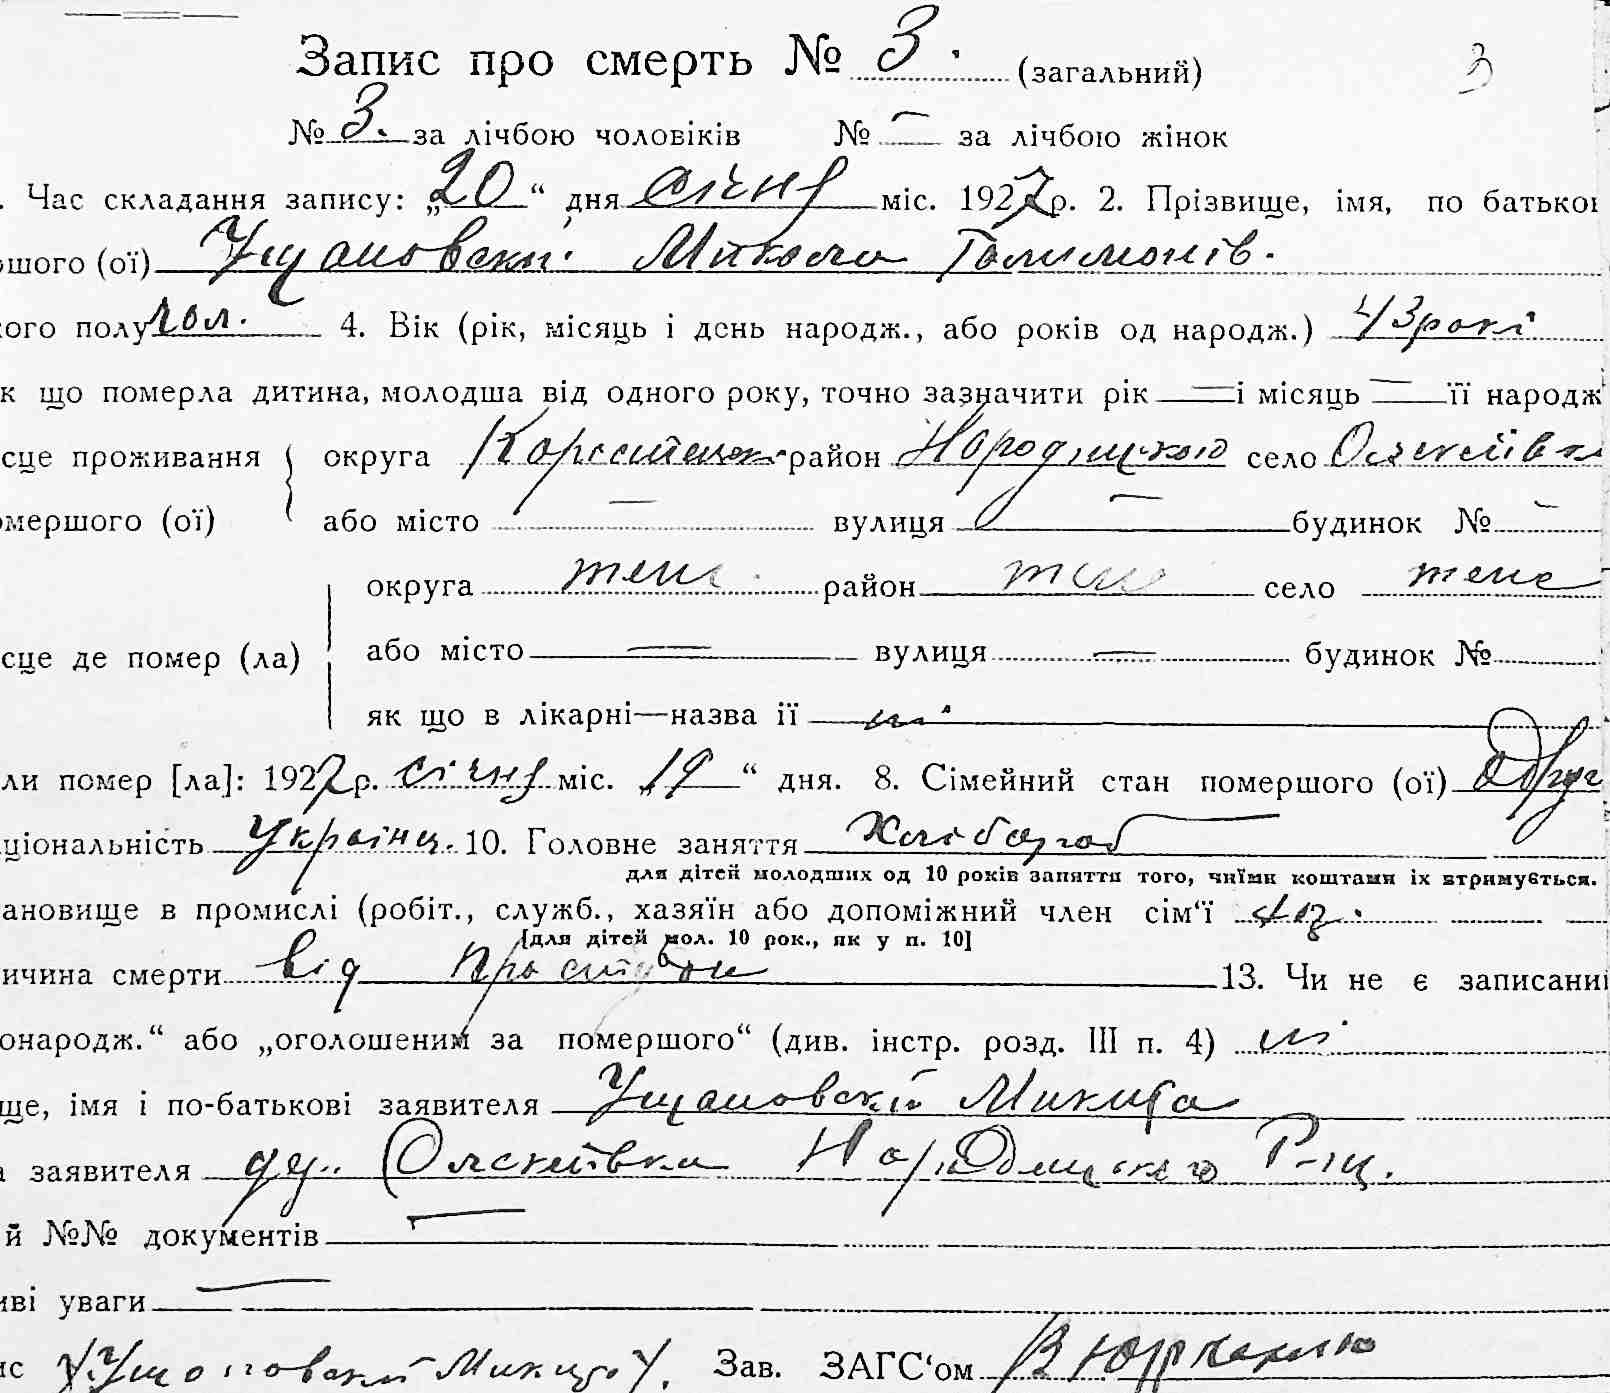 Запис про смерть № 3. (загальний) 3
№ 3. за лічбою чоловіків № — за лічбою жінок
. Час складання запису: „20“ дня січня міс. 1927 р. 2. Прізвище, імя, по батькові
ршого (ої) Микола
кого полу чол. 4. Вік (рік, місяць і день народж., або років од народж.) 43 рокі
к що померла дитина, молодша від одного року, точно зазначити рік — і місяць — її народж
сце проживання округа район Народицького село
омершого (ої) або місто — вулиця — будинок № —
округа теж район теж село теж
сце де помер (ла) або місто — вулиця — будинок №
як що в лікарні—назва її ні
ли помер [ла]: 1927 р. січня міс. „19“ дня. 8. Сімейний стан помершого (ої) одруж
ціональність Українц. 10. Головне заняття Хлібороб
для дітей молодших од 10 років заняття того, чиїми коштами їх втримується.
ановище в промислі (робіт., служб., хазяїн або допоміжний член сім‘ї хаз.
[для дітей мол. 10 рок., як у п. 10]
ичина смерти від простуди 13. Чи не є записани
онародж.“ або „оголошеним за помершого“ (див. інстр. розд. III п. 4) ні
ще, імя і по-батькові заявителя Микита
а заявителя Народицького Р-ну.
й №№ документів —
иві уваги —
ис Микита Зав. ЗАГС‘ом